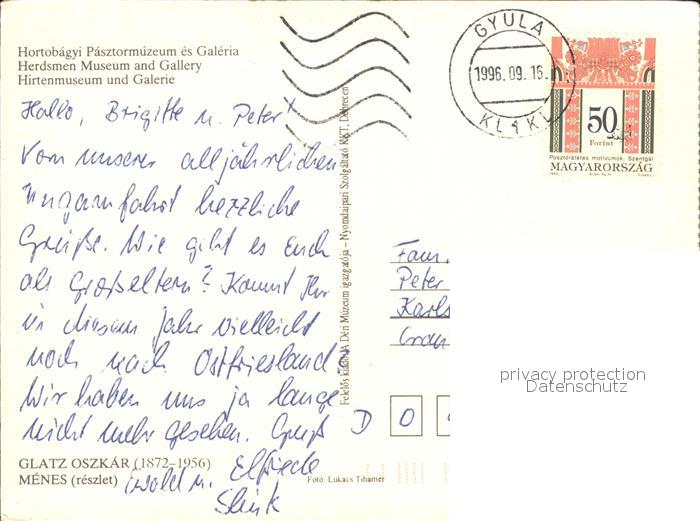 Hortobágyi Pásztormúzeum és Galéria
Herdsmen Museum and Gallery
Hirtenmuseum und Galerie
Hallo, Brigitte u. Peter!
Von unserer alljährlichen
Ungarnfahrt herzliche
Grüße. Wie geht es Euch
als Großeltern? Kommt Ihr
in diesem Jahr vielleicht
noch nach Ostfriesland?
Wir haben uns ja lange
nicht mehr gesehen. Gruß
Ewald u. Elfriede
GLATZ OSZKÁR (1872–1956)
MÉNES (részlet)
Fotó: Lukacs Tihamér
Felelős kiadó: A Déri Múzeum igazgatója – Nyomdaipari Szolgáltató KKT, Debrecen
GYULA
1996.09.16.
50
Forint
Posztórátétes motívumok. Szentgál
MAGYARORSZÁG
Fam.
Peter
Karls
D
privacy protection
Datenschutz